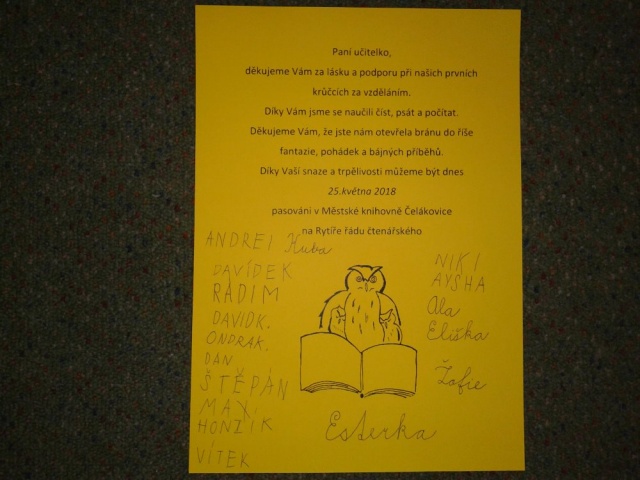 Paní učitelko,
děkujeme Vám za lásku a podporu při našich prvních
krůčcích za vzděláním.
Díky Vám jsme se naučili číst, psát a počítat.
Děkujeme Vám, že jste nám otevřela bránu do říše
fantazie, pohádek a bájných příběhů.
Díky Vaší snaze a trpělivosti můžeme být dnes
25.května 2018
pasováni v Městské knihovně Čelákovice
na Rytíře řádu čtenářského
ANDREI Kuba
DAVÍDEK
RADIM
DAVIDK.
ONDRAK.
DAN
ŠTĚPÁN
MAX
HONZÍK
VÍTEK
NIKI
AYSHA
Ala
Eliška
Žofie
Esterka